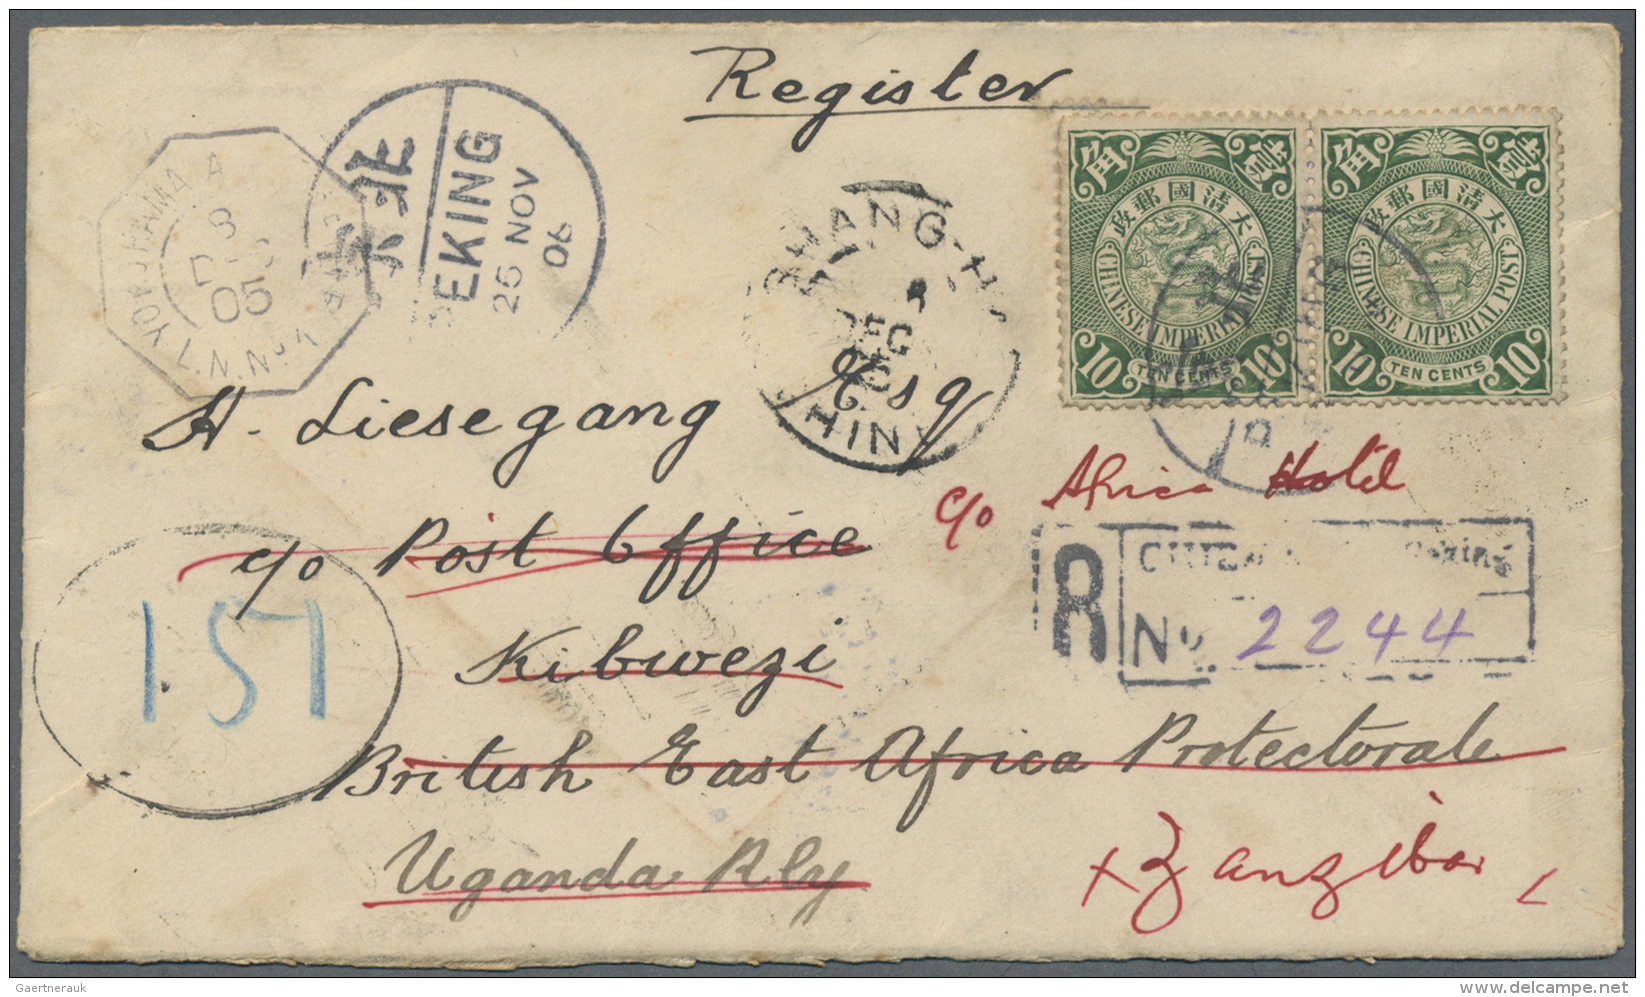 Register
北京
PEKING
25 NOV
05
YOKOHAMA A
8
05
L.N. Nº
SHANG-HAI
DEC
CHINE
角 壹
大清國郵政
CHINESE IMPERIAL POST
10 TEN CENTS 10
角 壹
大清國郵政
CHINESE IMPERIAL POST
10 TEN CENTS 10
H. Liesegang Esq
c/o Africa Hotel
c/o Post Office
R
Peking
No. 2244
151
Kibwezi
British East Africa Protectorate
Uganda Rly
+ Zanzibar
Gaertnerauk
delcampe.net